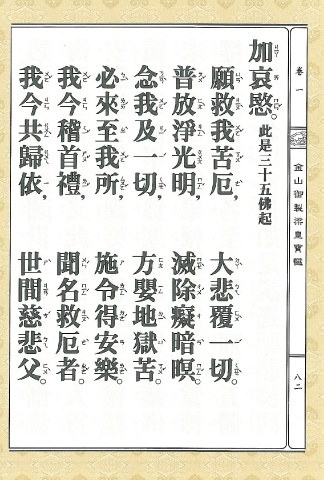 卷一
金山御製梁皇寶懺
八二
加哀愍。此是三十五佛起
願救我苦厄，大悲覆一切。
普放淨光明，滅除癡暗暝。
念我及一切，方嬰地獄苦。
必來至我所，施令得安樂。
我今稽首禮，聞名救厄者。
我今共歸依，世間慈悲父。